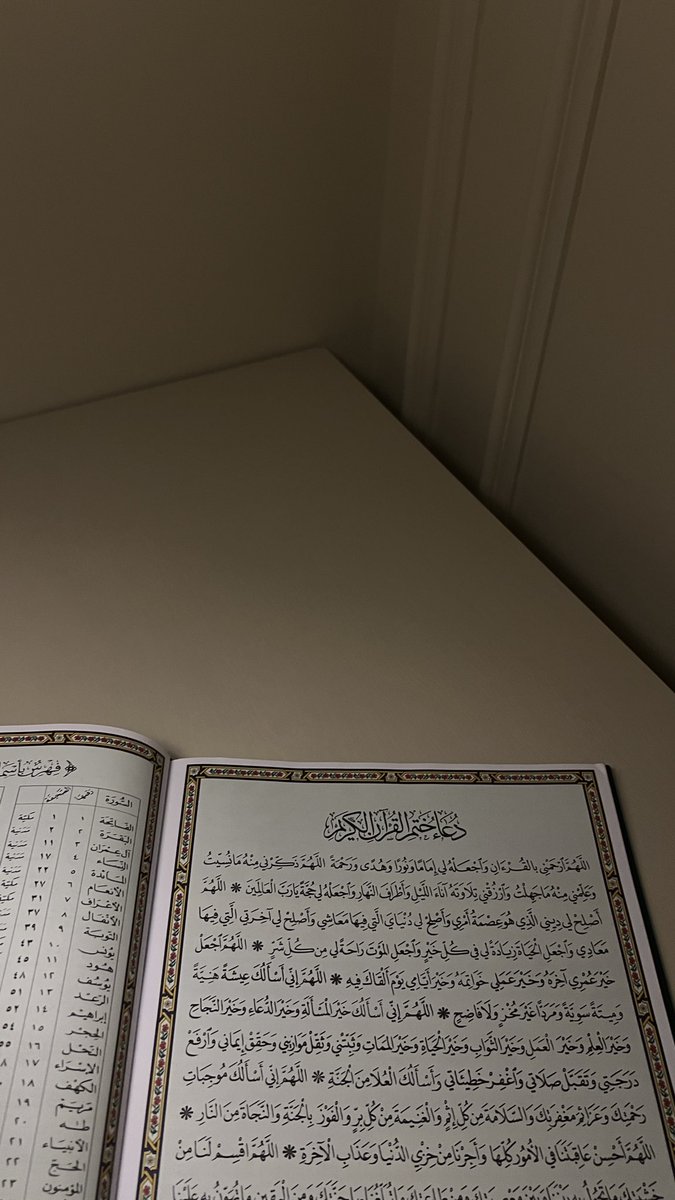 دُعَاءُ خَتْمِ الْقُرْآنِ الْكَرِيمِ
اللَّهُمَّ ارْحَمْنِي بِالقُرْءَانِ وَاجْعَلْهُ لِي إِمَامًا وَنُورًا وَهُدًى وَرَحْمَةً اللَّهُمَّ ذَكِّرْنِي مِنْهُ مَانُسِّيتُ
وَعَلِّمْنِي مِنْهُ مَاجَهِلْتُ وَارْزُقْنِي تِلَاوَتَهُ آنَاءَ اللَّيْلِ وَأَطْرَافَ النَّهَارِ وَاجْعَلْهُ لِي حُجَّةً يَارَبَّ العَالَمِينَ * اللَّهُمَّ
أَصْلِحْ لِي دِينِي الَّذِي هُوَ عِصْمَةُ أَمْرِي وَأَصْلِحْ لِي دُنْيَايَ الَّتِي فِيهَا مَعَاشِي وَأَصْلِحْ لِي آخِرَتِي الَّتِي فِيهَا
مَعَادِي وَاجْعَلِ الْحَيَاةَ زِيَادَةً لِي فِي كُلِّ خَيْرٍ وَاجْعَلِ الْمَوْتَ رَاحَةً لِي مِنْ كُلِّ شَرٍّ * اللَّهُمَّ اجْعَلْ
خَيْرَ عُمْرِي آخِرَهُ وَخَيْرَ عَمَلِي خَوَاتِمَهُ وَخَيْرَ أَيَّامِي يَوْمَ أَلْقَاكَ فِيهِ * اللَّهُمَّ إِنِّي أَسْأَلُكَ عِيشَةً هَنِيَّةً
وَمِيتَةً سَوِيَّةً وَمَرَدًّا غَيْرَ مُخْزٍ وَلَا فَاضِحٍ * اللَّهُمَّ إِنِّي أَسْأَلُكَ خَيْرَ الْمَسْأَلَةِ وَخَيْرَ الدُّعَاءِ وَخَيْرَ النَّجَاحِ
وَخَيْرَ الْعِلْمِ وَخَيْرَ الْعَمَلِ وَخَيْرَ الثَّوَابِ وَخَيْرَ الْحَيَاةِ وَخَيْرَ الْمَمَاتِ وَثَبِّتْنِي وَثَقِّلْ مَوَازِينِي وَحَقِّقْ إِيمَانِي وَارْفَعْ
دَرَجَتِي وَتَقَبَّلْ صَلَاتِي وَاغْفِرْ خَطِيئَاتِي وَأَسْأَلُكَ الْعُلَا مِنَ الْجَنَّةِ * اللَّهُمَّ إِنِّي أَسْأَلُكَ مُوجِبَاتِ
رَحْمَتِكَ وَعَزَائِمَ مَغْفِرَتِكَ وَالسَّلَامَةَ مِنْ كُلِّ إِثْمٍ وَالْغَنِيمَةَ مِنْ كُلِّ بِرٍّ وَالْفَوْزَ بِالْجَنَّةِ وَالنَّجَاةَ مِنَ النَّارِ *
اللَّهُمَّ أَحْسِنْ عَاقِبَتَنَا فِي الْأُمُورِ كُلِّهَا وَأَجِرْنَا مِنْ خِزْيِ الدُّنْيَا وَعَذَابِ الْآخِرَةِ * اللَّهُمَّ اقْسِمْ لَنَا مِنْ
خَشْيَتِكَ
فِهْرِسٌ بِأَسْمَاءِ
السُّورَة رقمها
الفَاتِحَة ١ ١ مكيّة
البَقَرَة ٢ ٢ مَدنيّة
آل عِمرَان ٣ ١١
النِّسَاء ٤ ١٧
المَائدة ٥ ٢٢
الأنعَام ٦ ٢٧ مكيّة
الأعرَاف ٧ ٣١
الأنفَال ٨ ٣٧
التوبَة ٩ ٣٩
يُونس ١٠ ٤٣
هُود ١١ ٤٥
يُوسُف ١٢ ٤٨
الرّعد ١٣ ٥١
إبراهِيم ١٤ ٥٢
الحِجر ١٥ ٥٤
النّحل ١٦ ٥٥
الإسرَاء ١٧
الكهف ١٨
مَريَم ١٩
طٰه ٢٠
الأنبيَاء ٢١
الحَج ٢٢
المؤمنون ٢٣